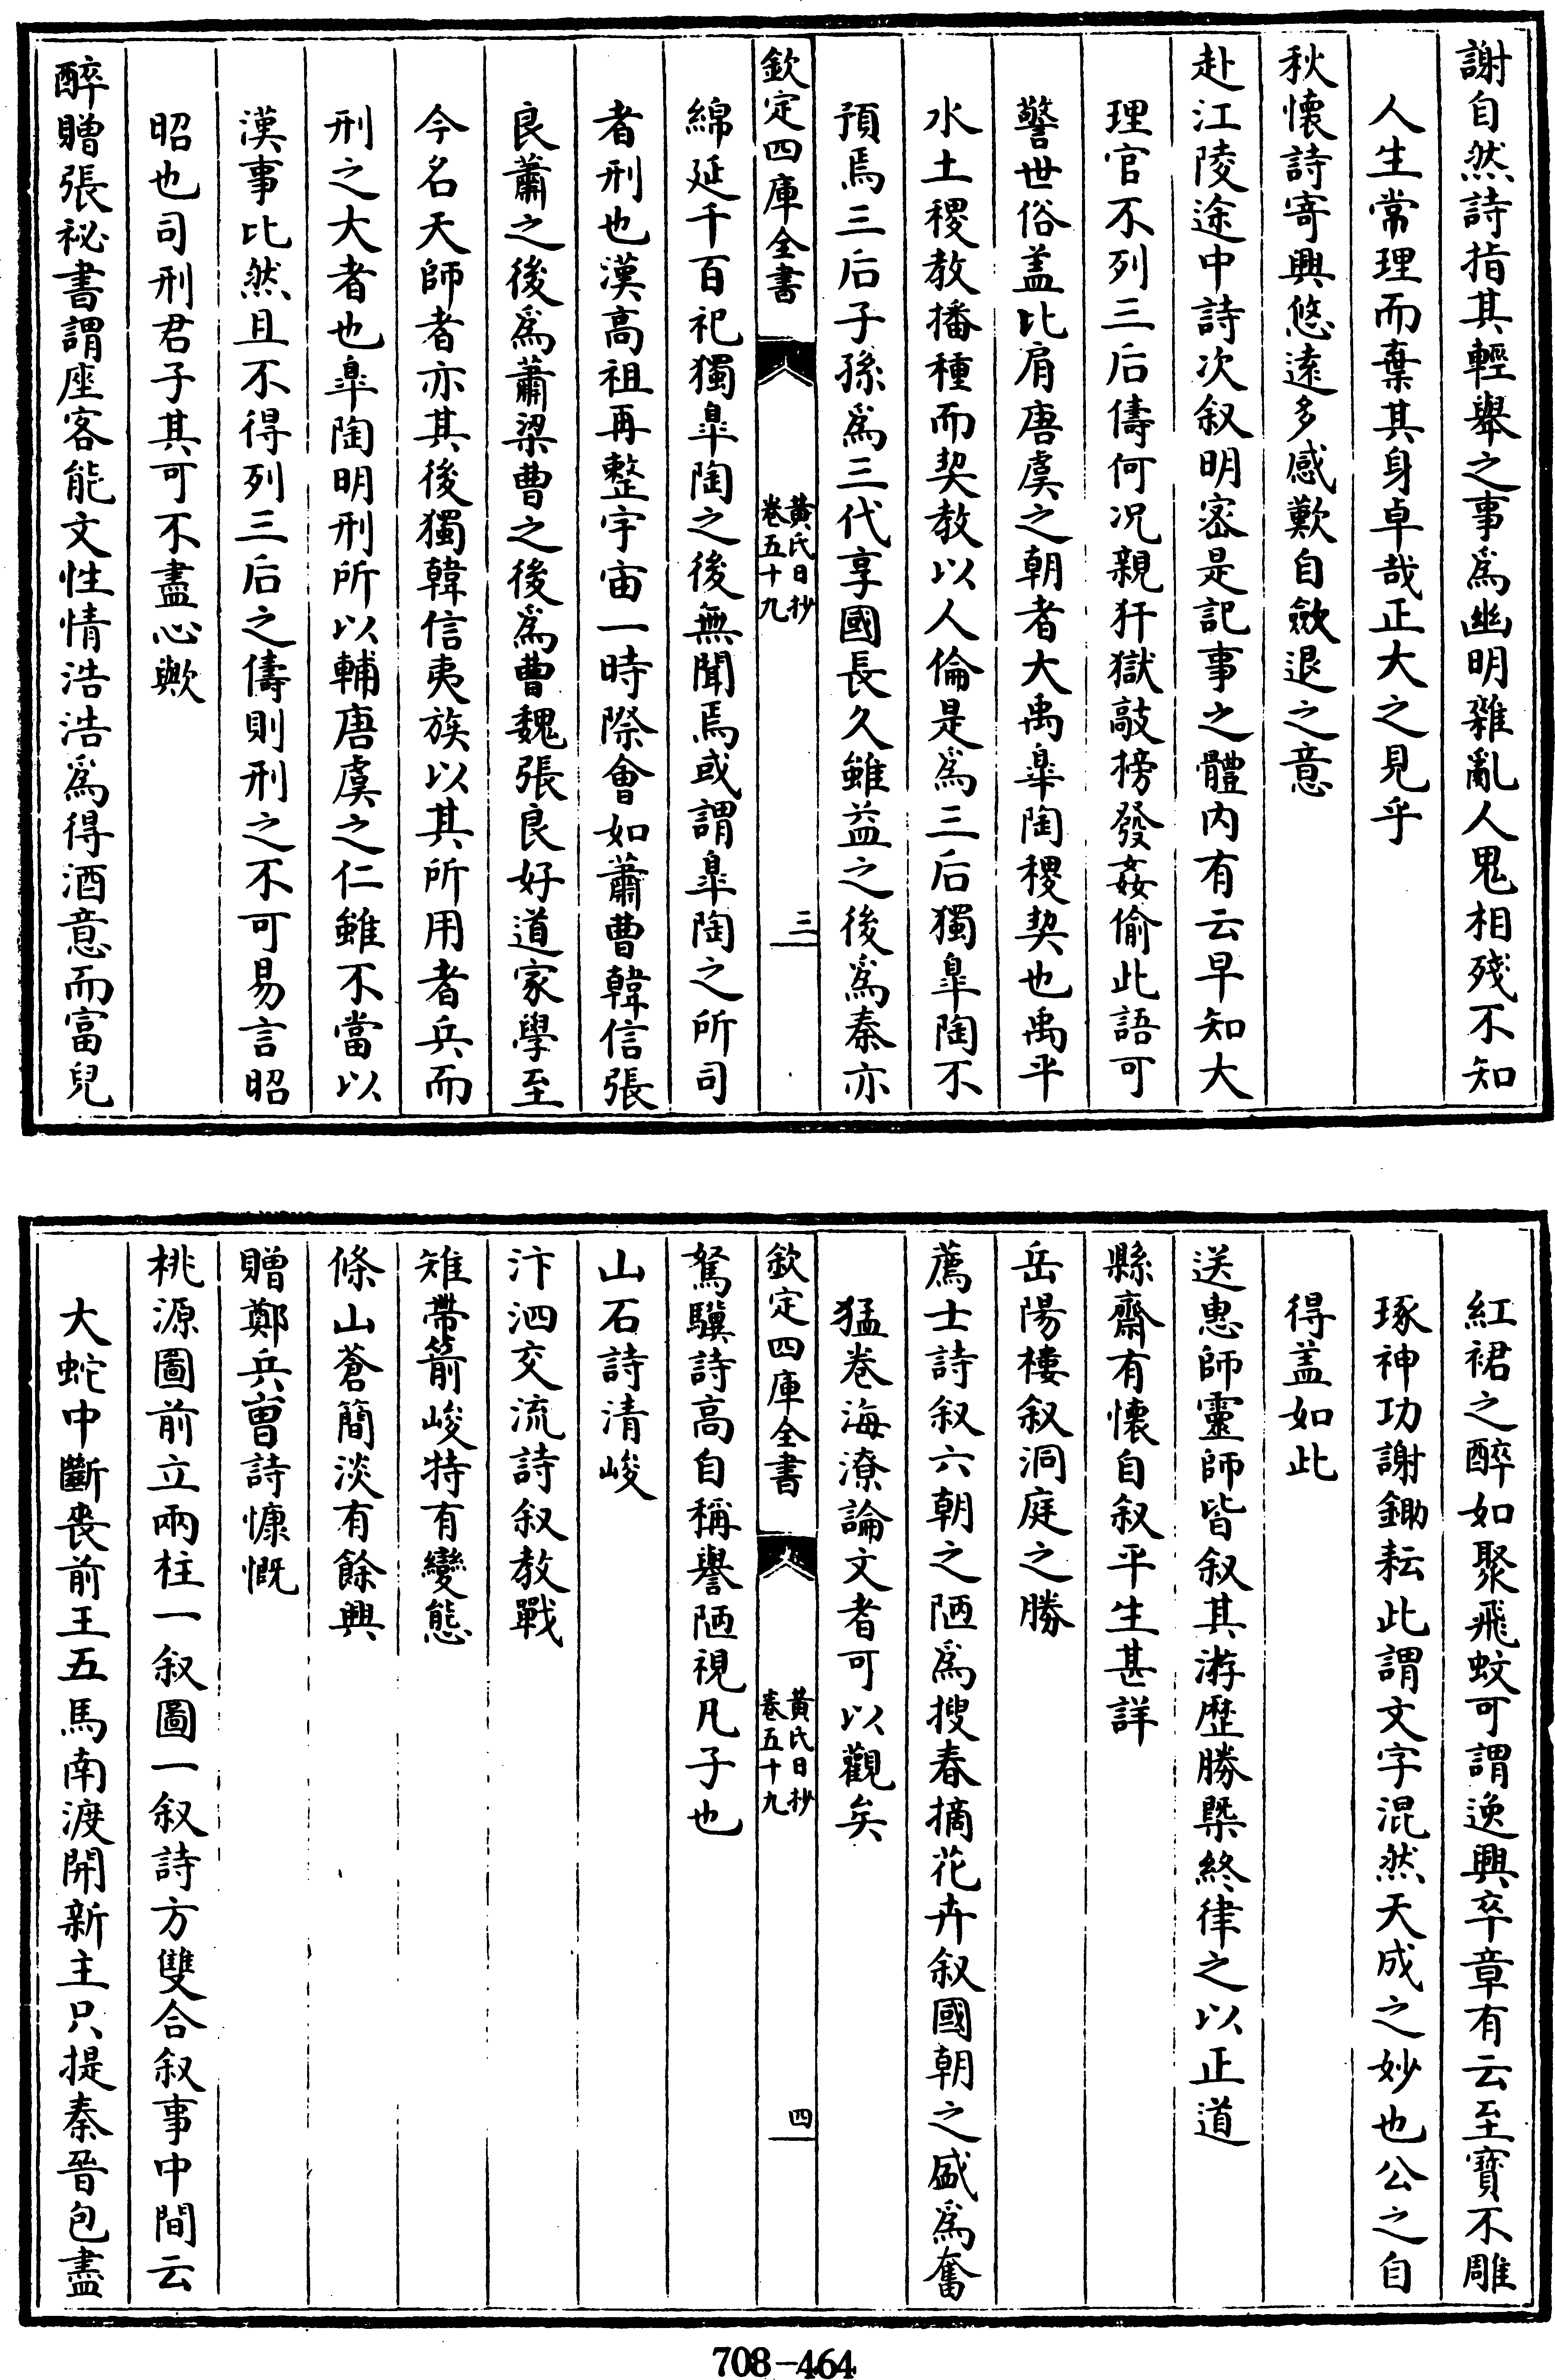 謝自然詩指其輕舉之事為幽明雜亂人鬼相殘不知
人生常理而棄其身卓哉正大之見乎
秋懷詩寄興悠遠多感歎自斂退之意
赴江陵途中詩次叙明宻是記事之體内有云早知大
理官不列三后儔何况親犴獄敲搒發姦偷此語可
警世俗盖比肩唐虞之朝者大禹臯陶稷契也禹平
水土稷教播種而契教以人倫是為三后獨臯陶不
預焉三后子孫為三代享國長久雖益之後為秦亦
欽定四庫全書
黄氏日抄
卷五十九
三
綿延千百祀獨臯陶之後無聞焉或謂臯陶之所司
者刑也漢髙祖再整宇宙一時際會如蕭曹韓信張
良蕭之後為蕭梁曹之後為曹魏張良好道家學至
今名天師者亦其後獨韓信夷族以其所用者兵而
刑之大者也臯陶明刑所以輔唐虞之仁雖不當以
漢事比然且不得列三后之儔則刑之不可易言昭
昭也司刑君子其可不盡心歟
醉贈張祕書謂座客能文性情浩浩為得酒意而富兒
紅裙之醉如聚飛蚊可謂逸興卒章有云至寳不雕
琢神功謝鋤耘此謂文字混然天成之妙也公之自
得盖如此
送惠師靈師皆叙其游歴勝槩終律之以正道
縣齋有懷自叙平生甚詳
岳陽樓叙洞庭之勝
薦士詩叙六朝之陋為搜春摘花卉叙國朝之盛為奮
猛卷海潦論文者可以觀矣
欽定四庫全書
黄氏日抄
卷五十九
四
駑驥詩髙自稱譽陋視凡子也
山石詩清峻
汴泗交流詩叙教戰
雉帶箭峻特有變態
條山蒼簡淡有餘興
贈鄭兵曹詩慷慨
桃源圖前立兩柱一叙圖一叙詩方雙合叙事中間云
大蛇中斷喪前王五馬南渡開新主只提秦晉包盡
708-464